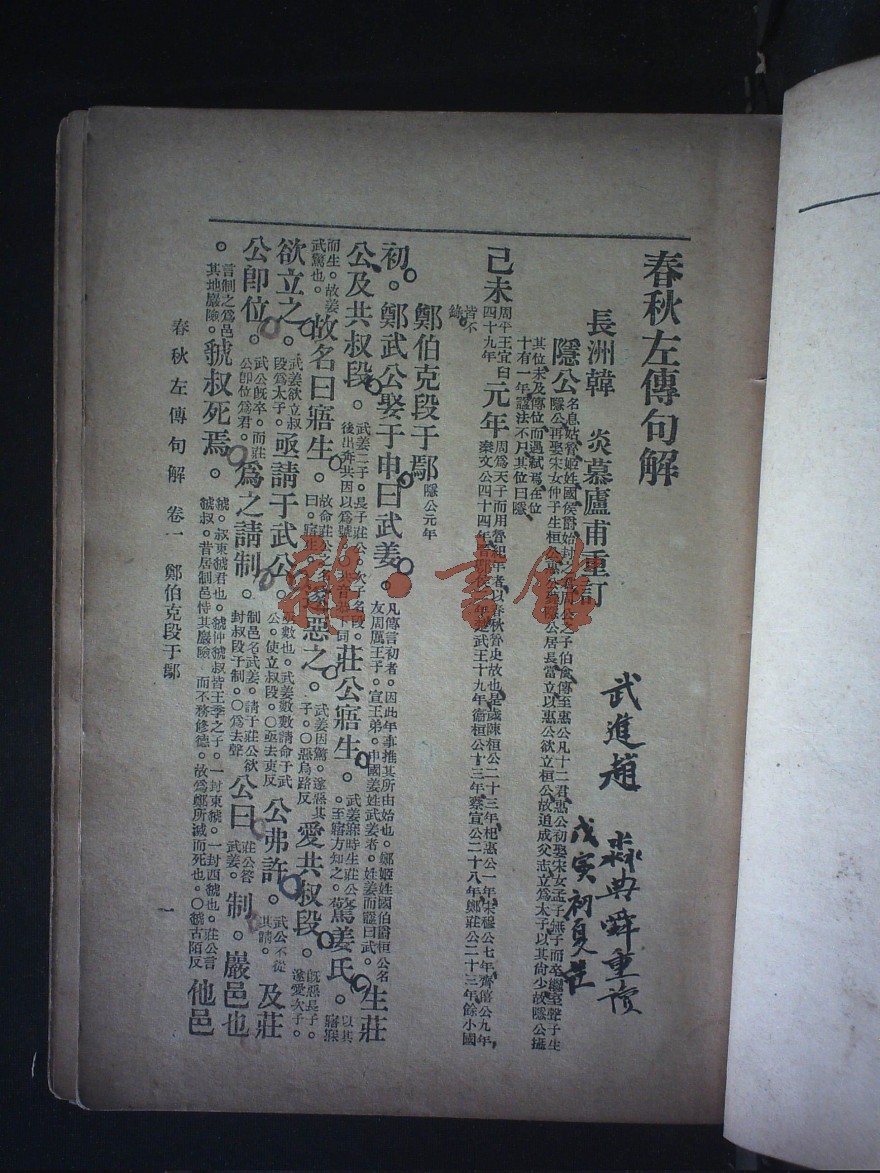 春秋左傳句解
長洲韓　炎慕廬甫重訂
武進趙
戊寅初夏
重讀
隱公名息姑魯姬姓國侯爵始封之君周公之子伯禽傳至惠公凡十二君惠公初娶宋女孟子無子而卒繼室聲子生
隱公再娶宋女仲子生桓公隱公居長當立以惠公欲立桓公故追成父志立爲太子以其尙少故隱公攝
其位未及傳位而遇弑焉在位
十有一年諡法不尸其位曰隱
己未周平王宜臼元年周爲天子而用魯紀年者以春秋魯史故也是歲陳桓公二十三年杞惠公一年宋穆公七年齊僖公九年
四十九年秦文公四十四年武王十九年衞桓公十三年蔡宣公二十八年鄭莊公二十三年餘小國
皆不
錄
鄭伯克段于鄢隱公元年
初。鄭武公娶于申曰武姜。凡傳言初者。因此年事推其所由始也。鄭姬姓國伯爵桓公名友周厲王子。宣王弟。申國姜姓武姜者。姓姜而諡曰武。生莊
公及共叔段。武姜二子。長子莊公。次子名段。後出奔共因以爲號。莊公寤生。武姜寐時生莊公。至寤方知之。驚姜氏。以其寤寐
而生。故姜武驚也。故名曰寤生。故命莊公之名曰。寤生。遂惡之。武姜因驚。遂惡其子。〇惡烏路反愛共叔段。旣惡長子。遂愛次子。
欲立之。武姜欲立叔段爲太子。亟請于武公。亟數也。武姜數數請命于武公。使立叔段。〇亟去吏反公弗許。武公不從其請。及莊
公卽位。武公旣卒。而莊公卽位爲君。爲之請制。制邑名武姜。請于莊公欲封叔段于制。〇爲去聲公曰。莊公答武姜。制。巖邑也
。言制之爲邑其地巖險。虢叔死焉。虢。叔東虢君也。虢仲虢叔皆王季之子。一封東虢。一封西虢也。莊公言虢叔。昔居制邑恃其巖險。而不務修德。故爲鄭所滅而死也。〇虢古陌反他邑
春秋左傳句解　卷一　鄭伯克段于鄢
一
書館